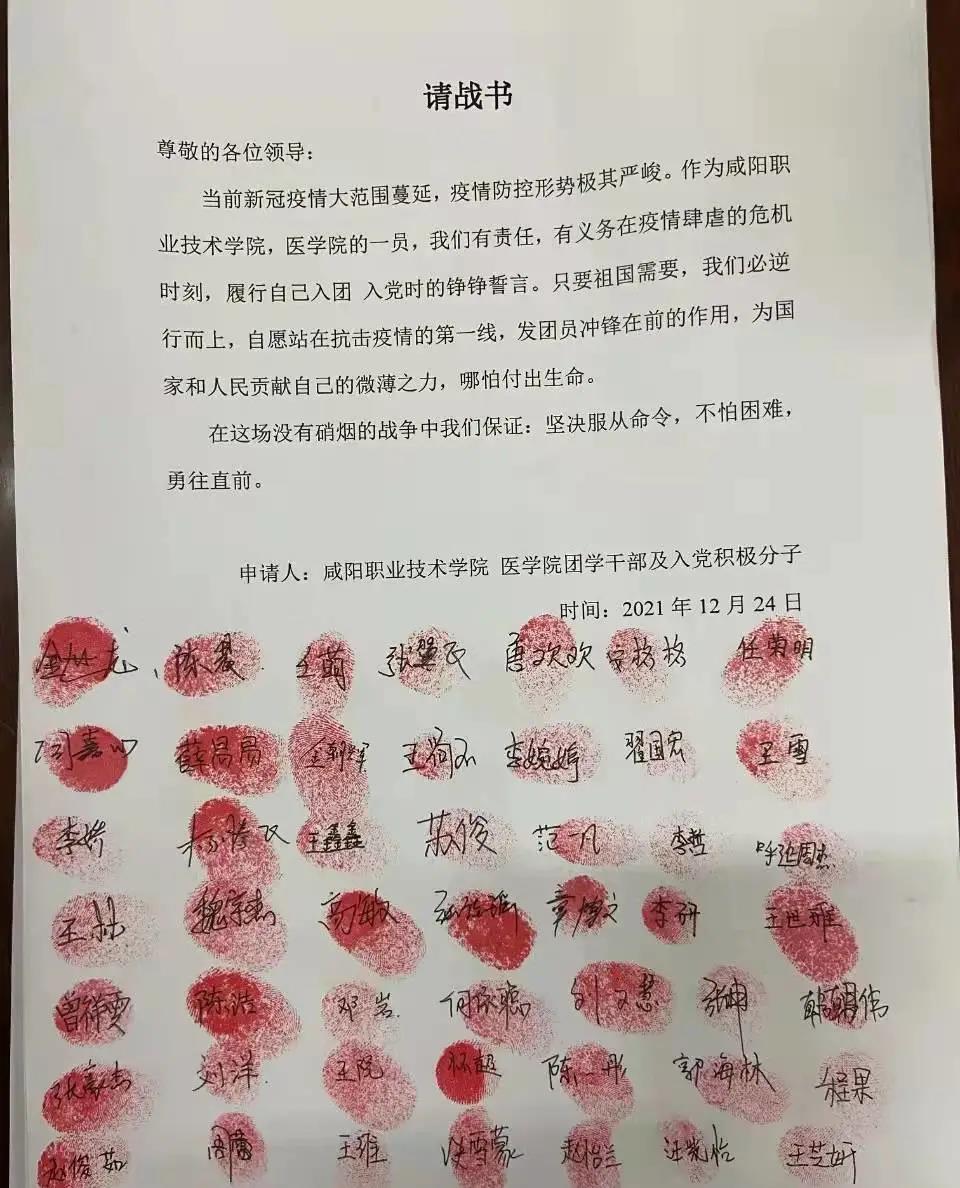 请战书
尊敬的各位领导：
当前新冠疫情大范围蔓延，疫情防控形势极其严峻。作为咸阳职
业技术学院，医学院的一员，我们有责任，有义务在疫情肆虐的危机
时刻，履行自己入团 入党时的铮铮誓言。只要祖国需要，我们必逆
行而上，自愿站在抗击疫情的第一线，发团员冲锋在前的作用，为国
家和人民贡献自己的微薄之力，哪怕付出生命。
在这场没有硝烟的战争中我们保证：坚决服从命令，不怕困难，
勇往直前。
申请人：咸阳职业技术学院 医学院团学干部及入党积极分子
时间：2021 年 12 月 24 日
陈 唐欢欢 格格 任荣明
薛昌局 李婉婷 翟国宏 王雪
李娇 王鑫鑫 苏俊 范凡 李哲 呼延周杰
王 魏宗杰 高敏 李研 王世雄
曾祥雯 陈浩 邓岩 何咏聪 刘文慧 张坤 韩朝伟
刘洋 王阮 怀超 陈一彤 郭海林 程果
赵俊茹 周蕾 王维 赵怡兰 汪悦怡 王芝妍